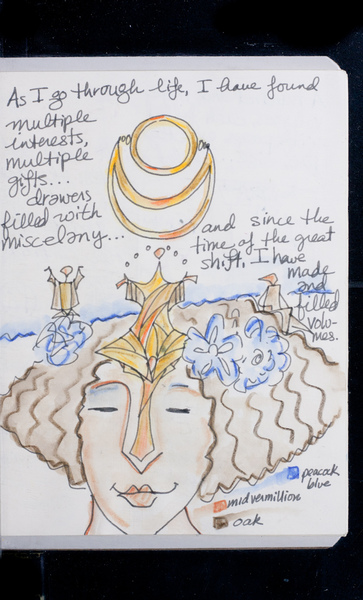 As I go through life, I have found
multiple
interests,
multiple
gifts...
drawers
filled with
miscelany...
and since the
time of the great
shift, I have
made
and
filled
volu-
mes.
peacock
blue
mid vermillion
oak